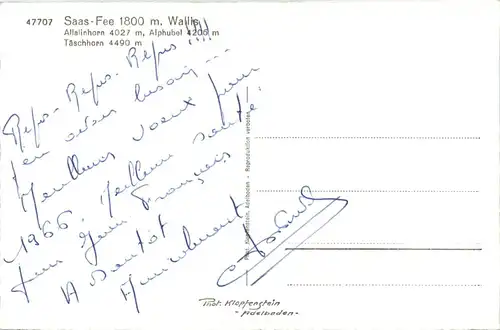 47707 Saas-Fee 1800 m. Wallis
Allalinhorn 4027 m, Alphubel 4206 m
Täschhorn 4490 m
Repos - Repos. Repos !!!!
j'en avais besoin ---
Meilleurs voeux pour
1966. Meilleure santé
pour Jean François
A bientôt
Amicalement
Phot. Klopfenstein, Adelboden - Reproduktion verboten
Phot. Klopfenstein
- Adelboden -